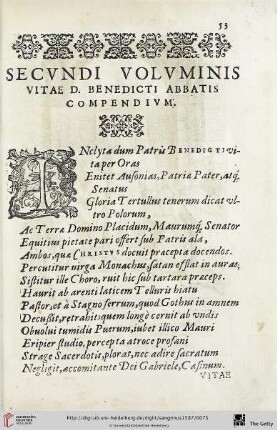 53
SECVNDI VOLVMINIS
VITAE D. BENEDICTI ABBATIS
COMPENDIVM.
INclyta dum Patris BENEDICTI vi-
ta per Oras
Enitet Ausonias, Patriæ Pater, atq́
Senatus
Gloria Tertullus tenerum dicat vl-
tro Polorum,
Ac Terræ Domino Placidum, Maurumq́, Senator
Equitius pietate pari offert sub Patris ala,
Ambos, quæ CHRISTVS docuit præcepta docendos.
Percutitur virga Monachus, satan efflat in auras,
Sistitur ille Choro, ruit hic sub tartara præceps.
Haurit ab arenti laticem Telluris hiatu
Pastor, et à Stagno ferrum, quod Gothus in amnem
Decussit, retrahit: quem longè cernit ab vndis
Obuolui tumidis Puerum, iubet illico Mauri
Eripier studio, percepta atroce profani
Strage Sacerdotis, plorat, nec adire sacratum
Negligit, accomitante Dei Gabriele, Casinum.
VITAE
http://digi.ub.uni-heidelberg.de/diglit/sangrinus1587/0075
© Universitätsbibliothek Heidelberg
The Getty